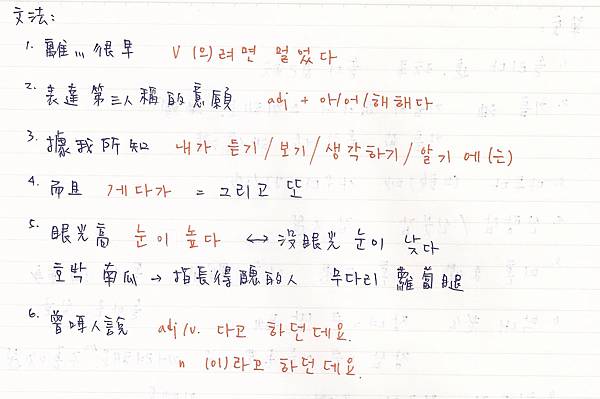 文法:
1. 離…很早 V (으)려면 멀었다
2. 表達第三人稱的意願 adj + 아/어/해해다
3. 據我所知 내가 듣기/보기/생각하기/알기에(는)
4. 而且 게다가 = 그리고 또
5. 眼光高 눈이 높다 ↔ 沒眼光 눈이 낮다
호박 南瓜 → 指長得醜的人 무다리 蘿蔔腿
6. 曾聽人說 adj/v. 다고 하던데요.
n (이)라고 하던데요.